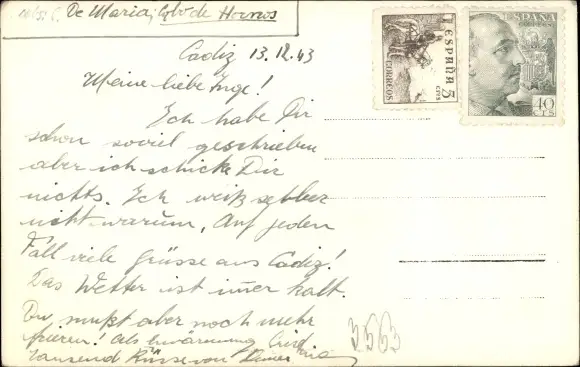 De Maria, Cabo de Hornos
Cadiz 13.12.43
Meine liebe Inge!
Ich habe Dir
schon soviel geschrieben
aber ich schicke Dir
nichts. Ich weiß selber
nicht warum. Auf jeden
Fall viele Grüsse aus Cádiz!
Das Wetter ist im̄er kalt.
Du mußt aber noch mehr
frieren! Als Erwärmung sind
Tausend Küsse von Deiner
ESPAÑA
5
CTS
CORREOS
ESPAÑA
40
CTS
3563